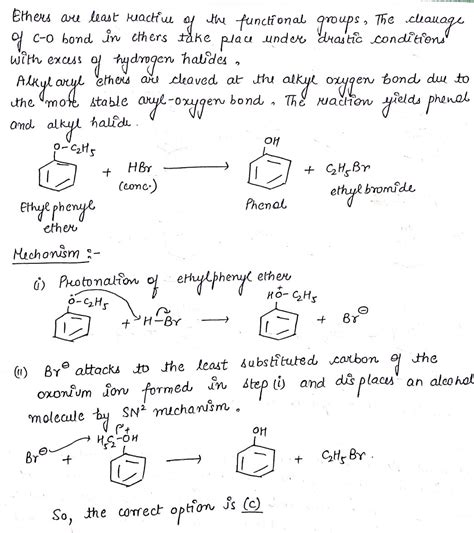 Ethers are least reactive of the functional groups, The cleavage
of C-O bond in ethers take place under drastic conditions
with excess of hydrogen halides.
Alkyl aryl ethers are cleaved at the alkyl oxygen bond due to
the more stable aryl-oxygen bond. The reaction yields phenol
and alkyl halide.
O-C₂H₅ + HBr (conc.) ⟶ OH + C₂H₅Br
Ethyl phenyl ether
Phenol
ethyl bromide
Mechanism :-
(i) Protonation of ethylphenyl ether
Ö-C₂H₅ + H-Br ⟶ HÖ⁺-C₂H₅ + Br⊖
(ii) Br⊖ attacks to the least substituted carbon of the
oxonium ion formed in step (i) and displaces an alcohol
molecule by SN² mechanism.
Br⊖ + H₅C₂-⁺OH ⟶ OH + C₂H₅Br.
So, the correct option is (C)